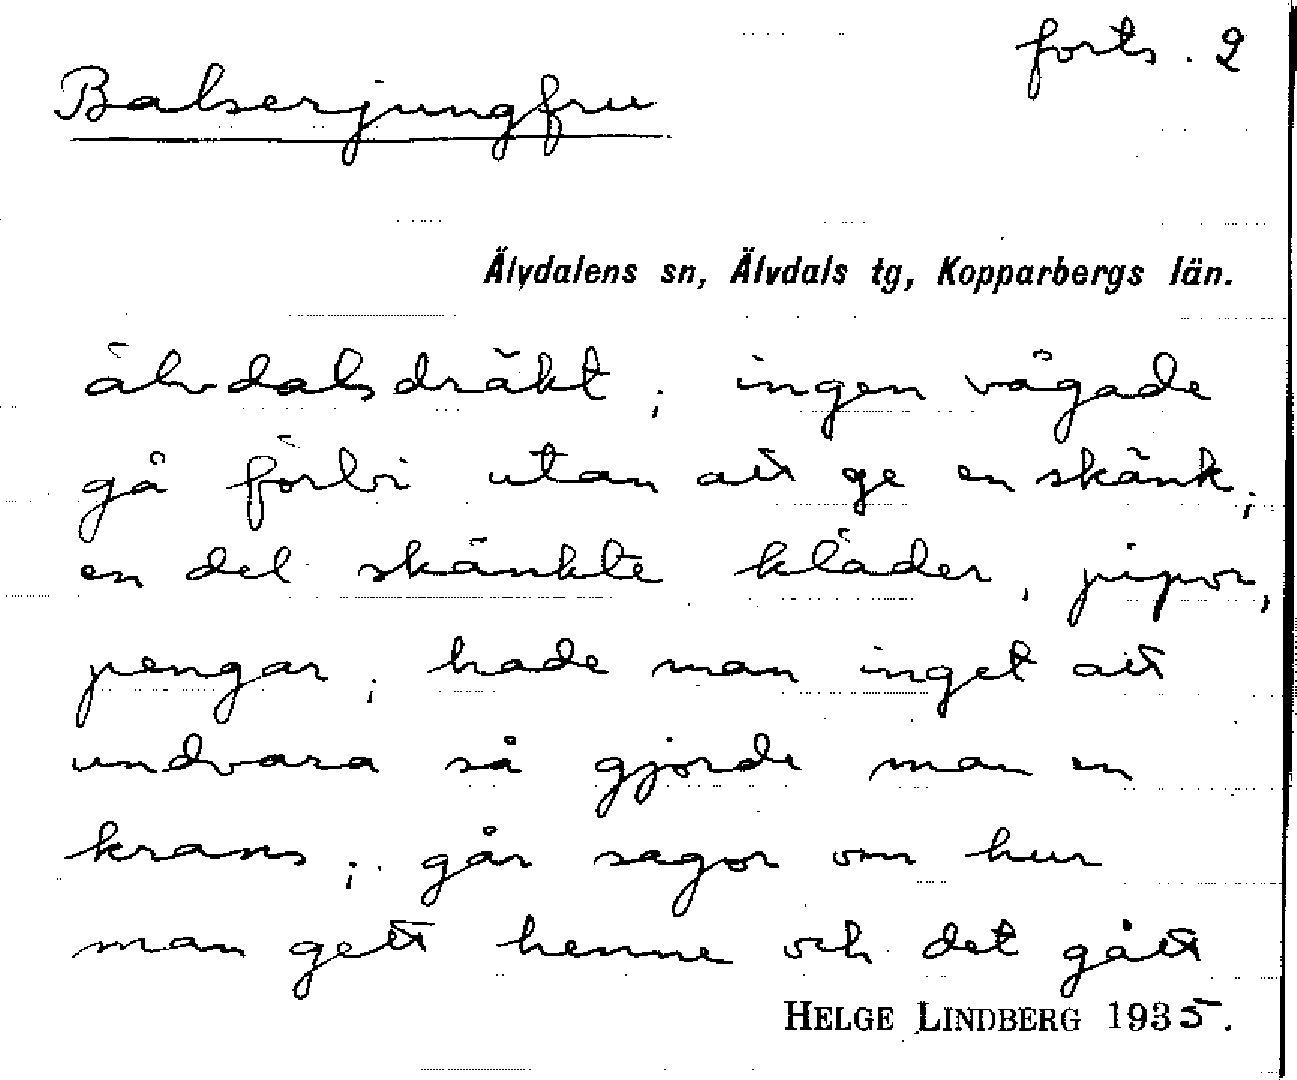 forts. 2
Balserjungfru
Älvdalens sn, Älvdals tg, Kopparbergs län.
älvdalsdräkt; ingen vågade
gå förbi utan att ge en skänk;
en del skänkte kläder, pipor,
pengar; hade man inget att
undvara så gjorde man en
krans; går sagor om hur
man gett henne och det gått
HELGE LINDBERG 1935.